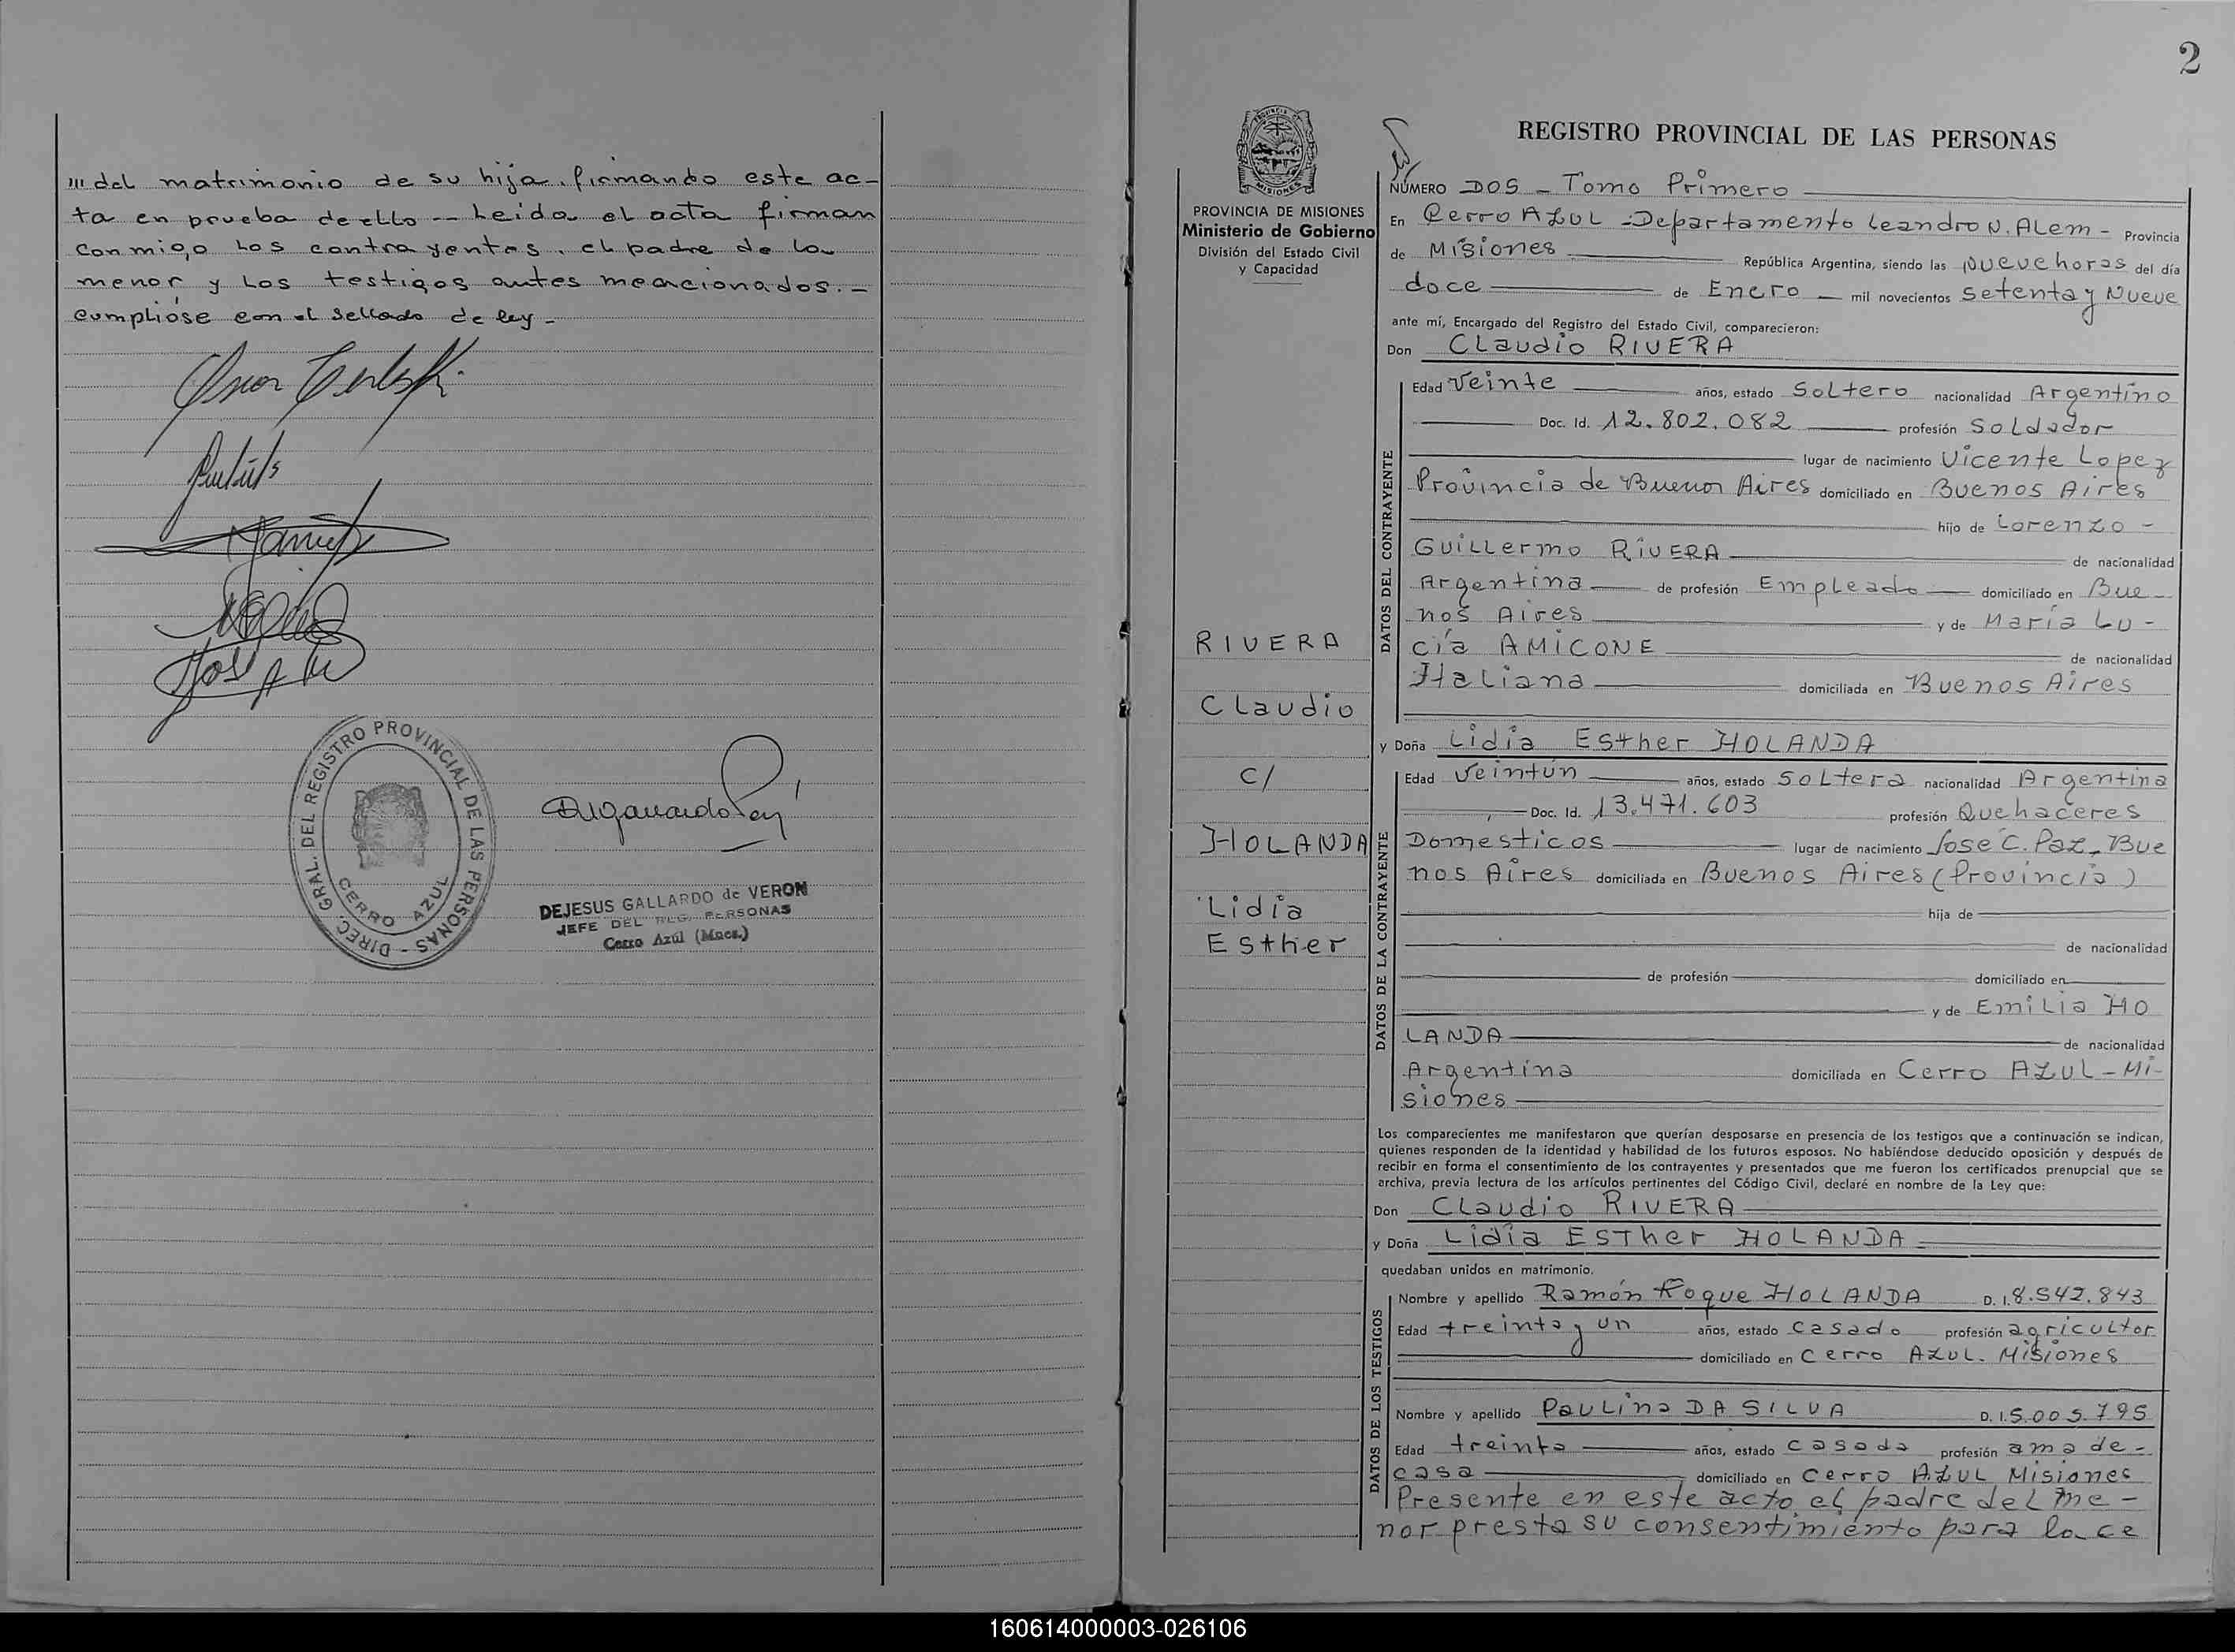 /// del matrimonio de su hija. firmando este ac-
ta en prueba de ello -- Leida el acta firman
conmigo Los contrayentes. el padre de la
menor y Los testigos antes meacionados. -
cumplióse con el sellado de ley -
DIREC. GRAL. DEL REGISTRO PROVINCIAL DE LAS PERSONAS -
CERRO AZUL
DEJESUS GALLARDO de VERON
JEFE DEL REG. PERSONAS
Cerro Azúl (Mnes.)
2
PROVINCIA DE MISIONES
Ministerio de Gobierno
División del Estado Civil
y Capacidad
RIVERA
Claudio
C/
HOLANDA
Lidia
Esther
REGISTRO PROVINCIAL DE LAS PERSONAS
NÚMERO DOS - Tomo Primero
En Cerro AZUL - Departamento Leandro N. ALem - Provincia
de Misiones República Argentina, siendo las Nueve horas del día
doce de Enero mil novecientos setenta y Nueve
ante mí, Encargado del Registro del Estado Civil, comparecieron:
Don Claudio RIVERA
DATOS DEL CONTRAYENTE
Edad Veinte años, estado Soltero nacionalidad Argentino
Doc. Id. 12.802.082 profesión Soldador
lugar de nacimiento Vicente Lopez
Provincia de Buenos Aires domiciliado en Buenos Aires
hijo de Lorenzo -
Guillermo RIVERA de nacionalidad
Argentina de profesión Empleado domiciliado en Bue-
nos Aires y de María Lu-
cía AMICONE de nacionalidad
Italiana domiciliada en Buenos Aires
y Doña Lidia Esther HOLANDA
DATOS DE LA CONTRAYENTE
Edad Veintún años, estado Soltera nacionalidad Argentina
Doc. Id. 13.471.603 profesión Quehaceres
Domesticos lugar de nacimiento Jose C. Paz, Bue
nos Aires domiciliada en Buenos Aires (Provincia)
hija de
de nacionalidad
de profesión domiciliado en
y de Emilia HO
LANDA de nacionalidad
Argentina domiciliada en Cerro AZUL - Mi-
siones
Los comparecientes me manifestaron que querían desposarse en presencia de los testigos que a continuación se indican,
quienes responden de la identidad y habilidad de los futuros esposos. No habiéndose deducido oposición y después de
recibir en forma el consentimiento de los contrayentes y presentados que me fueron los certificados prenupcial que se
archiva, previa lectura de los artículos pertinentes del Código Civil, declaré en nombre de la Ley que:
Don Claudio RIVERA
y Doña Lidia Esther HOLANDA
quedaban unidos en matrimonio.
DATOS DE LOS TESTIGOS
Nombre y apellido Ramón Roque HOLANDA D. I. 8.542.843
Edad treinta y un años, estado casado profesión agricultor
domiciliado en Cerro AZUL. Misiones
Nombre y apellido Paulina DA SILVA D. I. 5.005.795
Edad treinta años, estado casada profesión ama de -
casa domiciliado en Cerro AZUL Misiones
Presente en este acto el padre del me-
nor presta su consentimiento para la ce
160614000003-026106